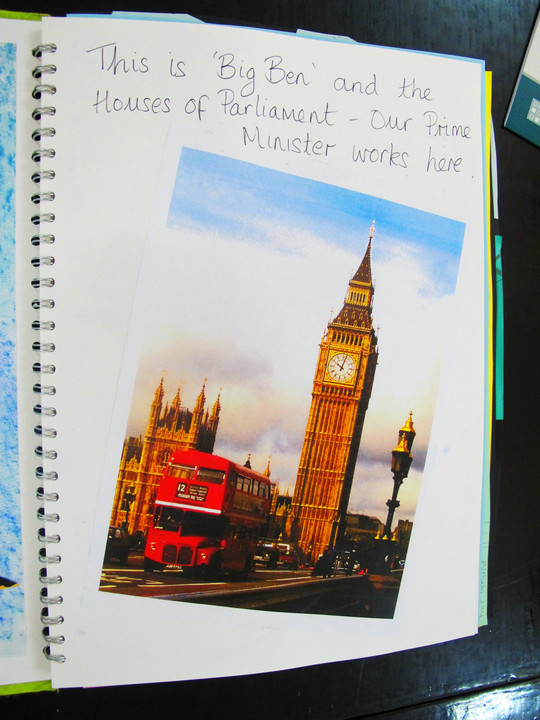 This is 'Big Ben' and the
Houses of Parliament - Our Prime
Minister works here.
12